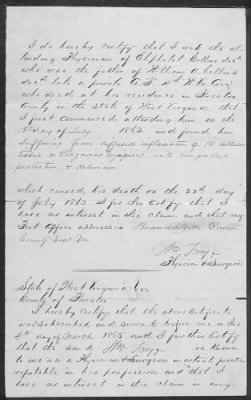 I do hereby certify that I was the at-
tending Physician of Eliphalet Collins decd
who was the father of William A. Collins
decd late a private Co. " " W. Va. Cav.
who died at his residence in Preston
County in the State of West Virginia, that
I first commenced attending him on the
day of July 1863 and found him
suffering from diffused inflammation of the cellular
tissue
prostration & delirium
which caused his death on the 22nd day
of July 1863. I further certify that I
have no interest in this claim and that my
Post Office address is Brandonville Preston
County West Va
Wm
Physician & Surgeon
State of West Virginia
County of Preston
I hereby Certify that the above Certificate
was subscribed and sworn to before me on this
day of March 1865 and I further Certify
that the said Wm is known
to me as a Physician & Surgeon in actual practice
reputable in his profession and that I
have no interest in this Claim in any